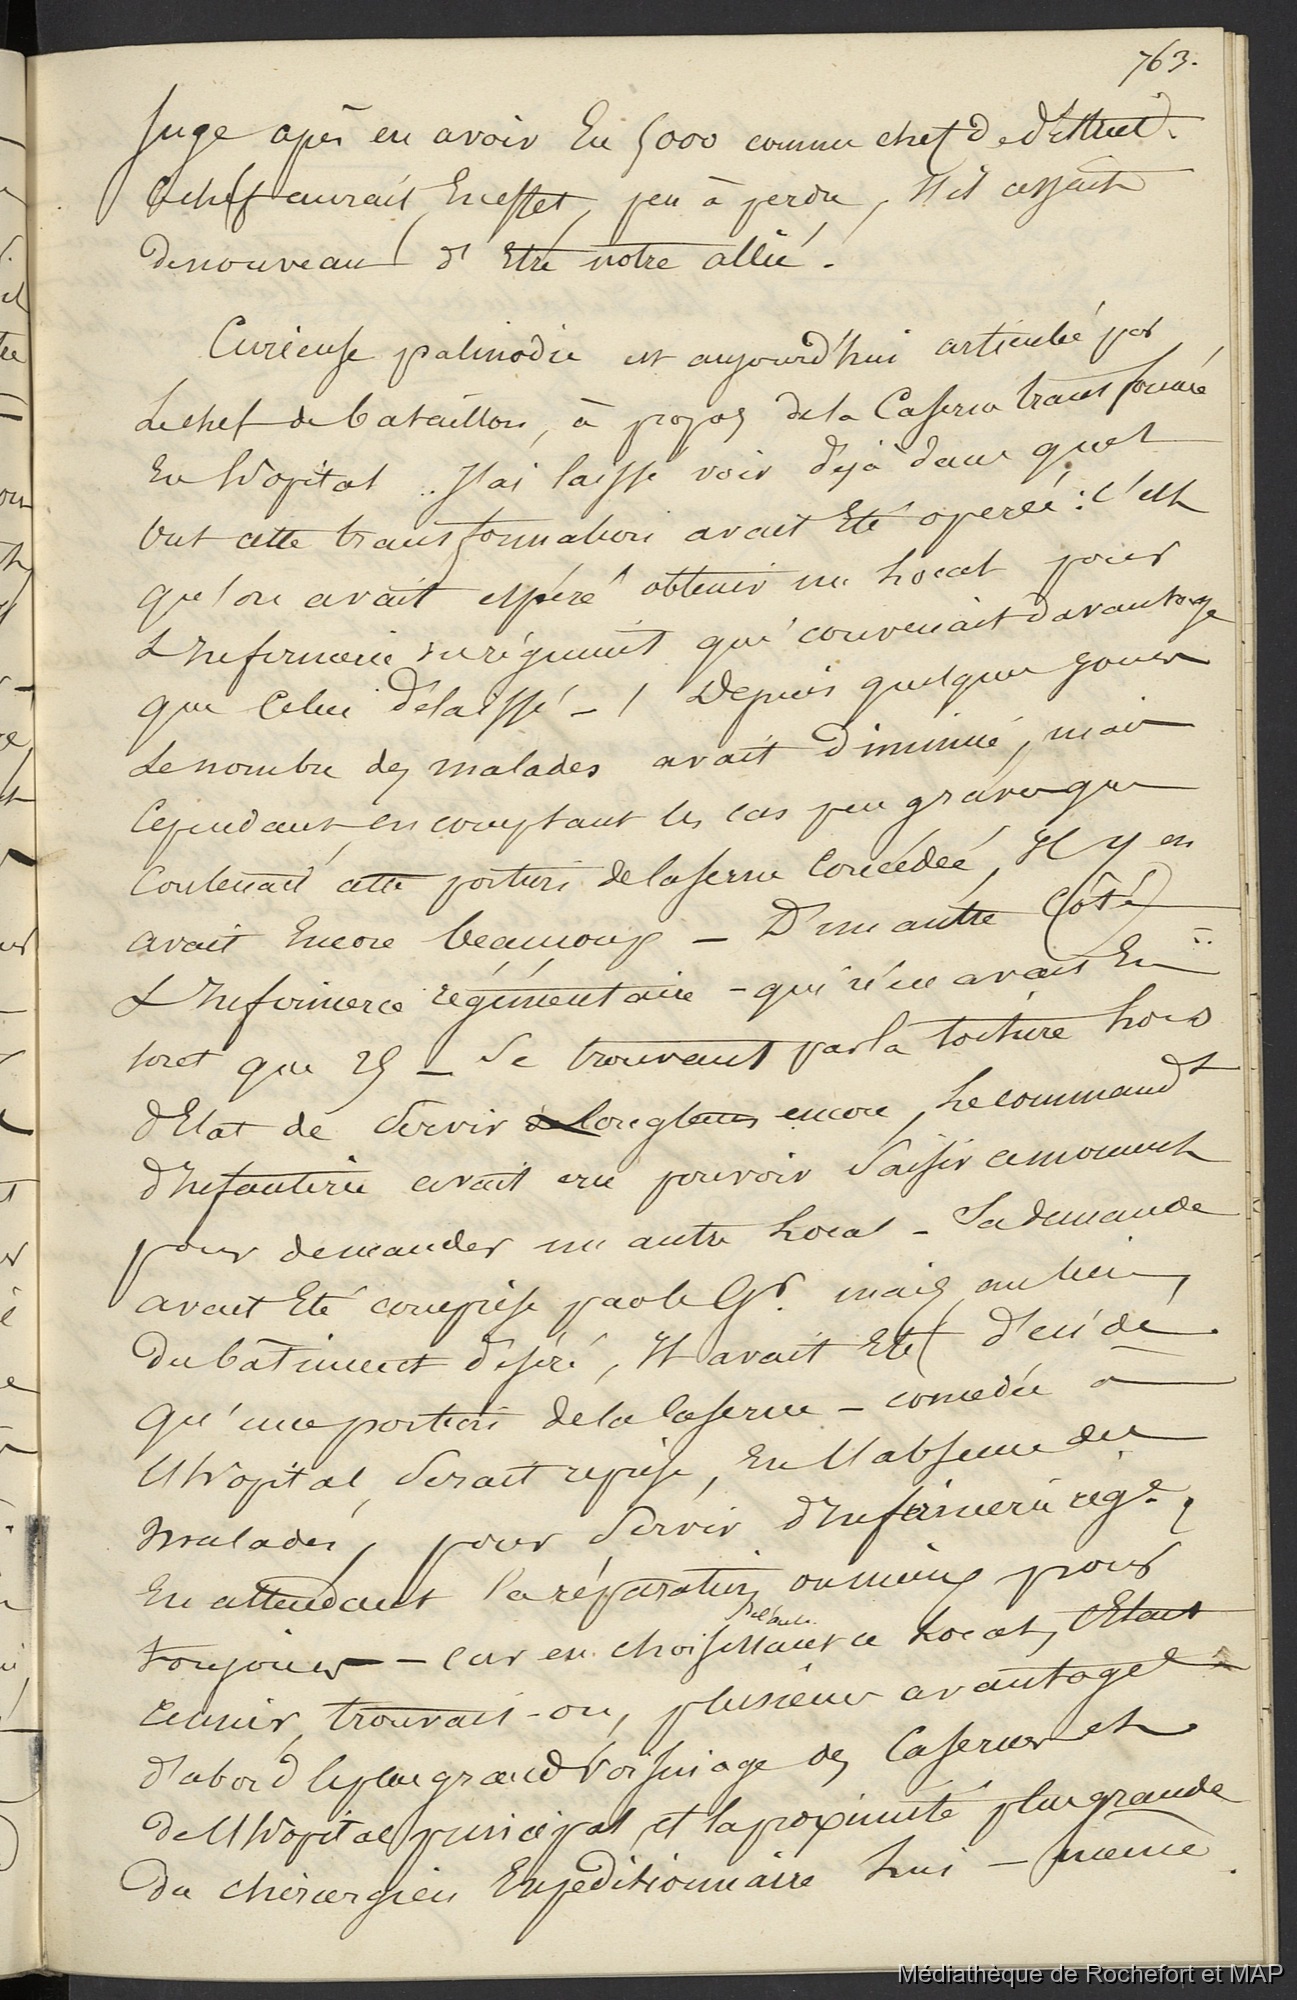 763.
Juge après en avoir Eu 5000 comme chef de district.
Ce chef aurait, En effet, peu à perdre, s'il cessait
de nouveau d'Etre notre allié.
Curieuse palinodie est aujourd'hui articulée par
Le chef de bataillon, à propos de la Caserne transformée
En hôpital .. J'ai laissé voir déjà dans quel
but cette transformation avait Eté operée : c'est
qu'on avait espéré obtenir un Local pour
L'Infirmerie du régiment qui convenait davantage
que Celui délaissé - ! Depuis quelques jours
Le nombre des malades avait Diminué, mais
Cependant en comptant les cas peu graves que
Contenait cette portion de Caserne Concédée, Il y en
avait Encore beaucoup - D'un autre Côté
L'Infirmerie régimentaire - qui n'en avait En
tout que 25 - Se trouvant par la toiture hors
d'Etat de Servir longtems encore, Le commandt
d'Infanterie avait cru pouvoir Saisir ce moment
pour demander un autre Local - Sa demande
avait Eté comprise par le Gr. mais, au lieu
Du bâtiment désiré, Il avait Eté décidé
Qu'une portion de la Caserne - concédée à
L'hôpital, Serait reprise, En l'absence des
malades, pour Servir d'Infirmerie rége.,
En attendant la réparation ou mieux pour
toujours - Car en choisissant ce Local, Etaut
réunir, trouvait-on, plusieurs avantages
d'abord le plus grand Voisinage des Casernes et
De L'hôpital principal, et la proximité plus grande
Du chirurgien Expéditionnaire Lui - même.
Médiathèque de Rochefort et MAP